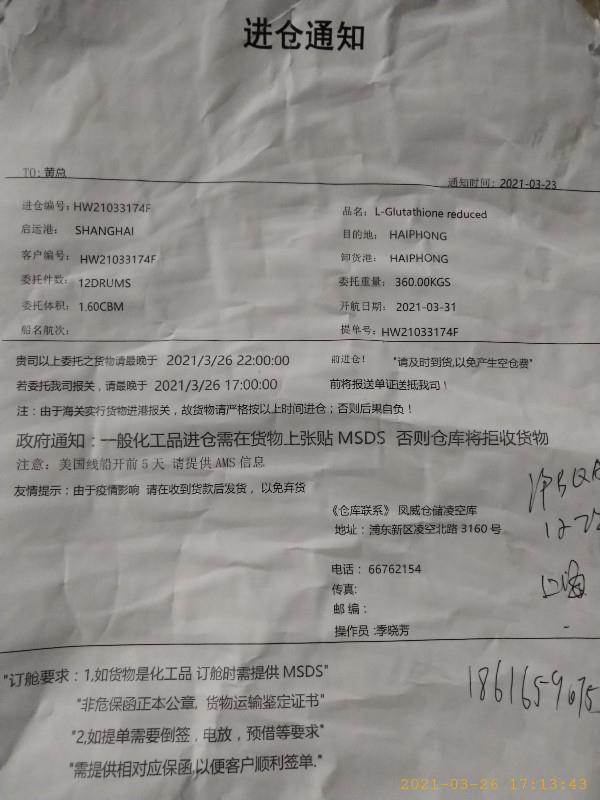 进仓通知
TO: 黄总
通知时间: 2021-03-23
进仓编号: HW21033174F
品名: L-Glutathione reduced
启运港: SHANGHAI
目的地: HAIPHONG
客户编号: HW21033174F
卸货港: HAIPHONG
委托件数: 12DRUMS
委托重量: 360.00KGS
委托体积: 1.60CBM
开航日期: 2021-03-31
船名航次:
提单号: HW21033174F
贵司以上委托之货物请最晚于 2021/3/26 22:00:00 前进仓! "请及时到货,以免产生空仓费"
若委托我司报关，请最晚于 2021/3/26 17:00:00 前将报送单证送抵我司！
注：由于海关实行货物进港报关，故货物请严格按以上时间进仓；否则后果自负！
政府通知：一般化工品进仓需在货物上张贴 MSDS 否则仓库将拒收货物
注意：美国线船开前 5 天 请提供 AMS 信息
友情提示：由于疫情影响 请在收到货款后发货，以免弃货
《仓库联系》 凤威仓储凌空库
地址：浦东新区凌空北路 3160 号
电话： 66762154
传真:
邮 编：
操作员 :季晓芳
"订舱要求：1,如货物是化工品 订舱时需提供 MSDS"
"非危保函正本公章, 货物运输鉴定证书"
"2,如提单需要倒签，电放，预借等要求"
"需提供相对应保函,以便客户顺利签单."
2021-03-26 17:13:43